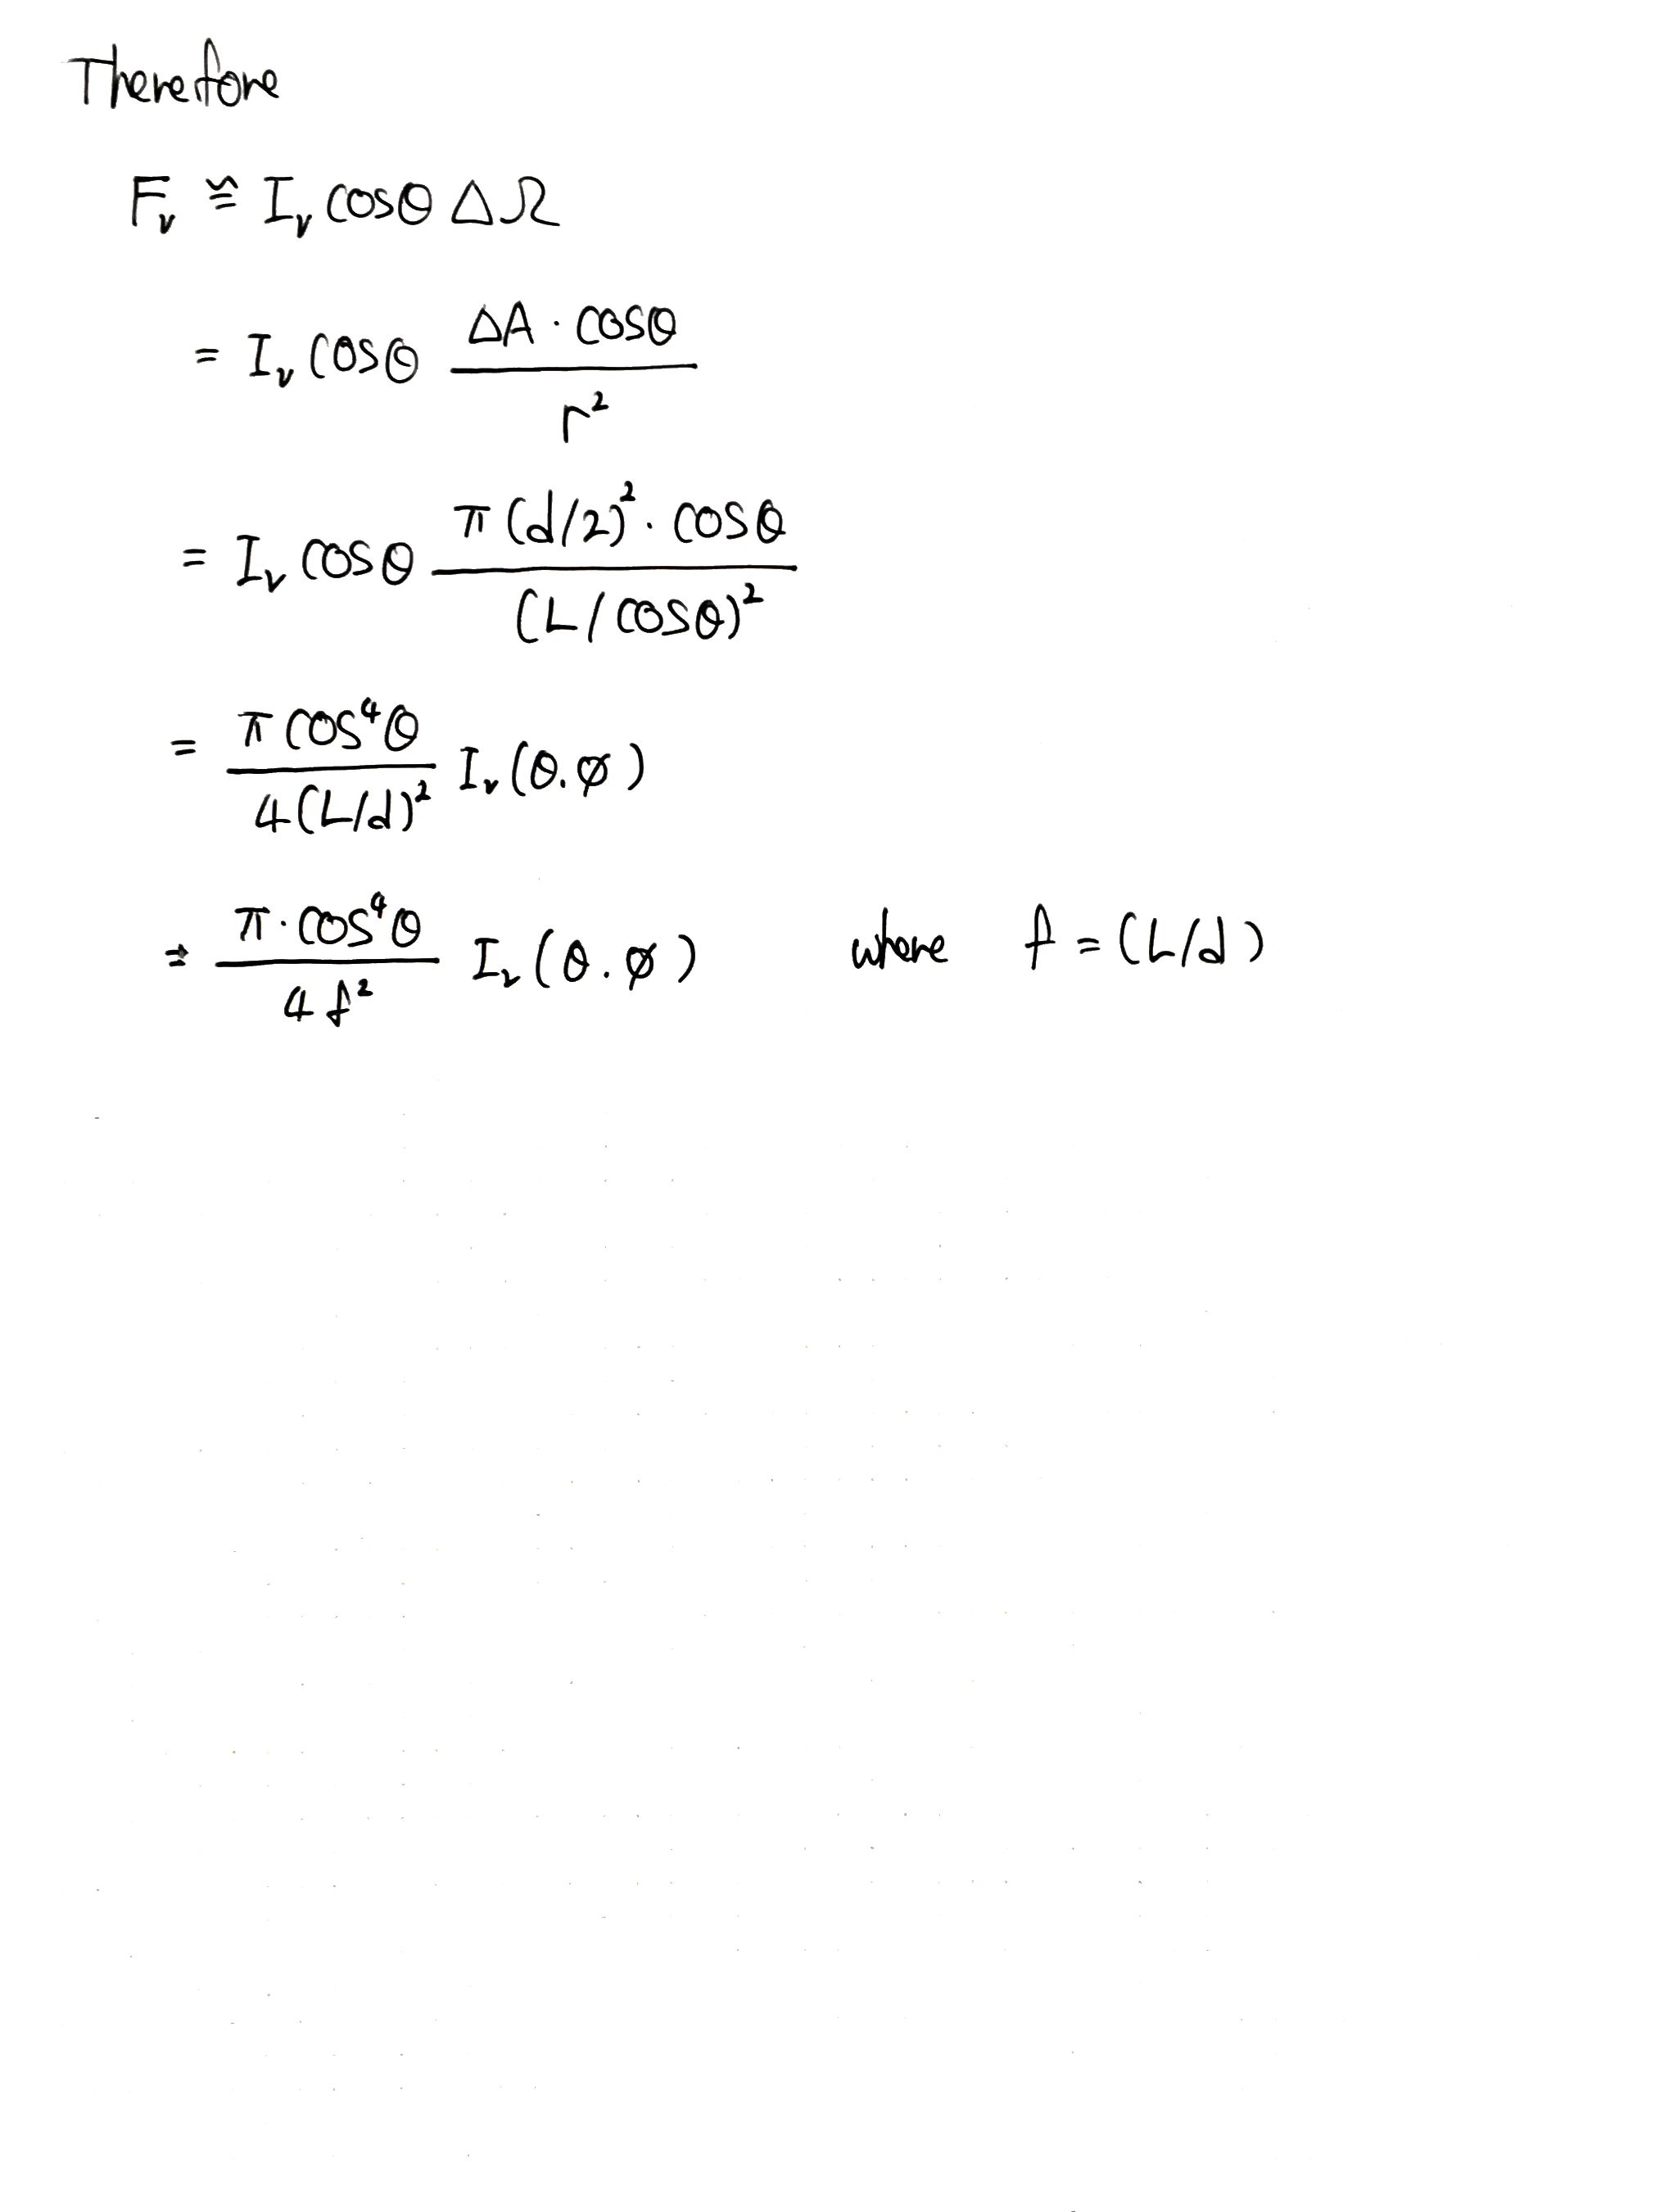 Therefore
F_ν ≅ I_ν cosθ ΔΩ
= I_ν cosθ \frac{ΔA · cosθ}{r^2}
= I_ν cosθ \frac{π (d/2)^2 · cosθ}{(L/cosθ)^2}
= \frac{π cos^4θ}{4(L/d)^2} I_ν(θ.φ)
= \frac{π · cos^4θ}{4f^2} I_ν(θ.φ) where f = (L/d)